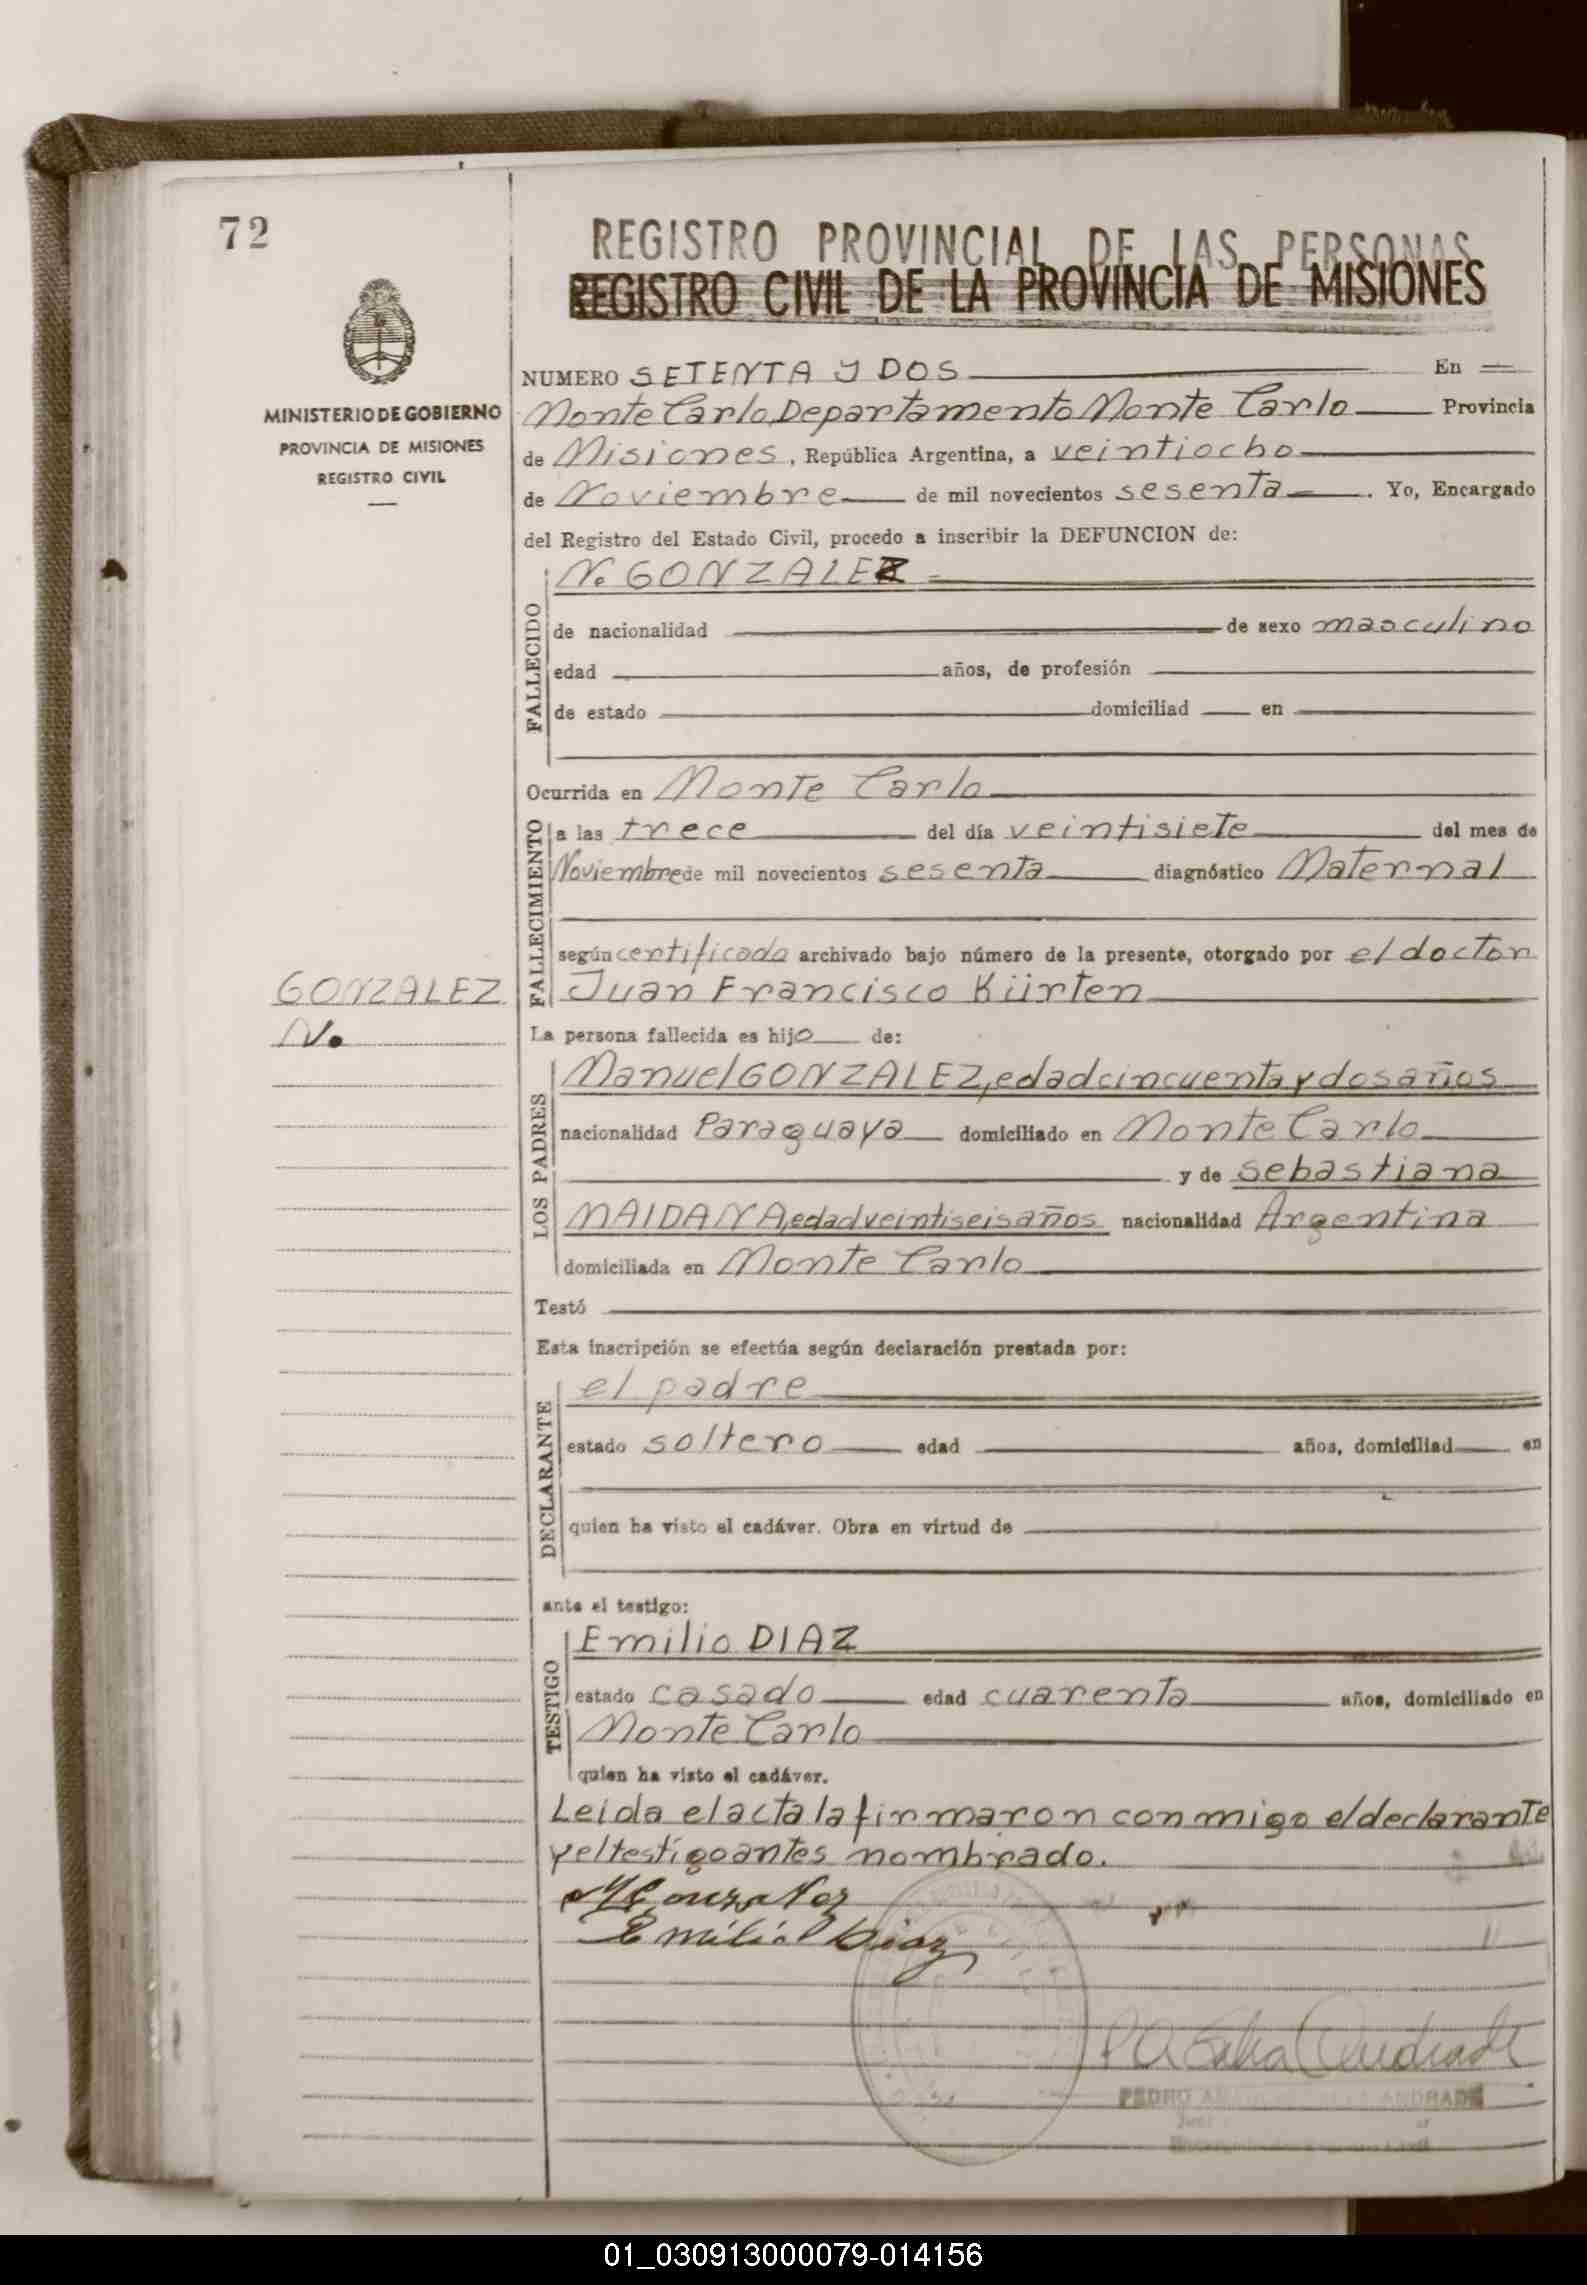 72
REGISTRO PROVINCIAL DE LAS PERSONAS
REGISTRO CIVIL DE LA PROVINCIA DE MISIONES
MINISTERIO DE GOBIERNO
PROVINCIA DE MISIONES
REGISTRO CIVIL
NUMERO SETENTA Y DOS En
Monte Carlo, Departamento Monte Carlo Provincia
de Misiones, República Argentina, a veintiocho
de Noviembre de mil novecientos sesenta. Yo, Encargado
del Registro del Estado Civil, procedo a inscribir la DEFUNCION de:
FALLECIDO
N. GONZALEZ
de nacionalidad de sexo masculino
edad años, de profesión
de estado domiciliad en
Ocurrida en Monte Carlo
FALLECIMIENTO
a las trece del día veintisiete del mes de
Noviembre de mil novecientos sesenta diagnóstico Maternal
según certificado archivado bajo número de la presente, otorgado por el doctor
Juan Francisco Kürten
GONZALEZ
N.
La persona fallecida es hijo de:
LOS PADRES
Manuel GONZALEZ, edad cincuenta y dos años
nacionalidad Paraguaya domiciliado en Monte Carlo
y de Sebastiana
MAIDANA, edad veintiseis años nacionalidad Argentina
domiciliada en Monte Carlo
Testó
Esta inscripción se efectúa según declaración prestada por:
DECLARANTE
el padre
estado soltero edad años, domiciliad en
quien ha visto el cadáver. Obra en virtud de
ante el testigo:
TESTIGO
Emilio DIAZ
estado casado edad cuarenta años, domiciliado en
Monte Carlo
quien ha visto el cadáver.
Leida el acta la firmaron conmigo el declarante
y el testigo antes nombrado.
M Gonzalez
Emilio Diaz
Andrade
PEDRO ANDRADE
01_030913000079-014156